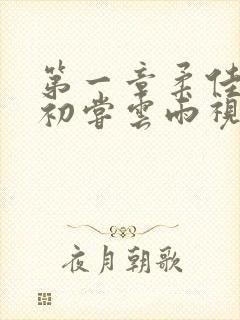 第一章柔佳
初嘗雲雨視
夜月朝歌